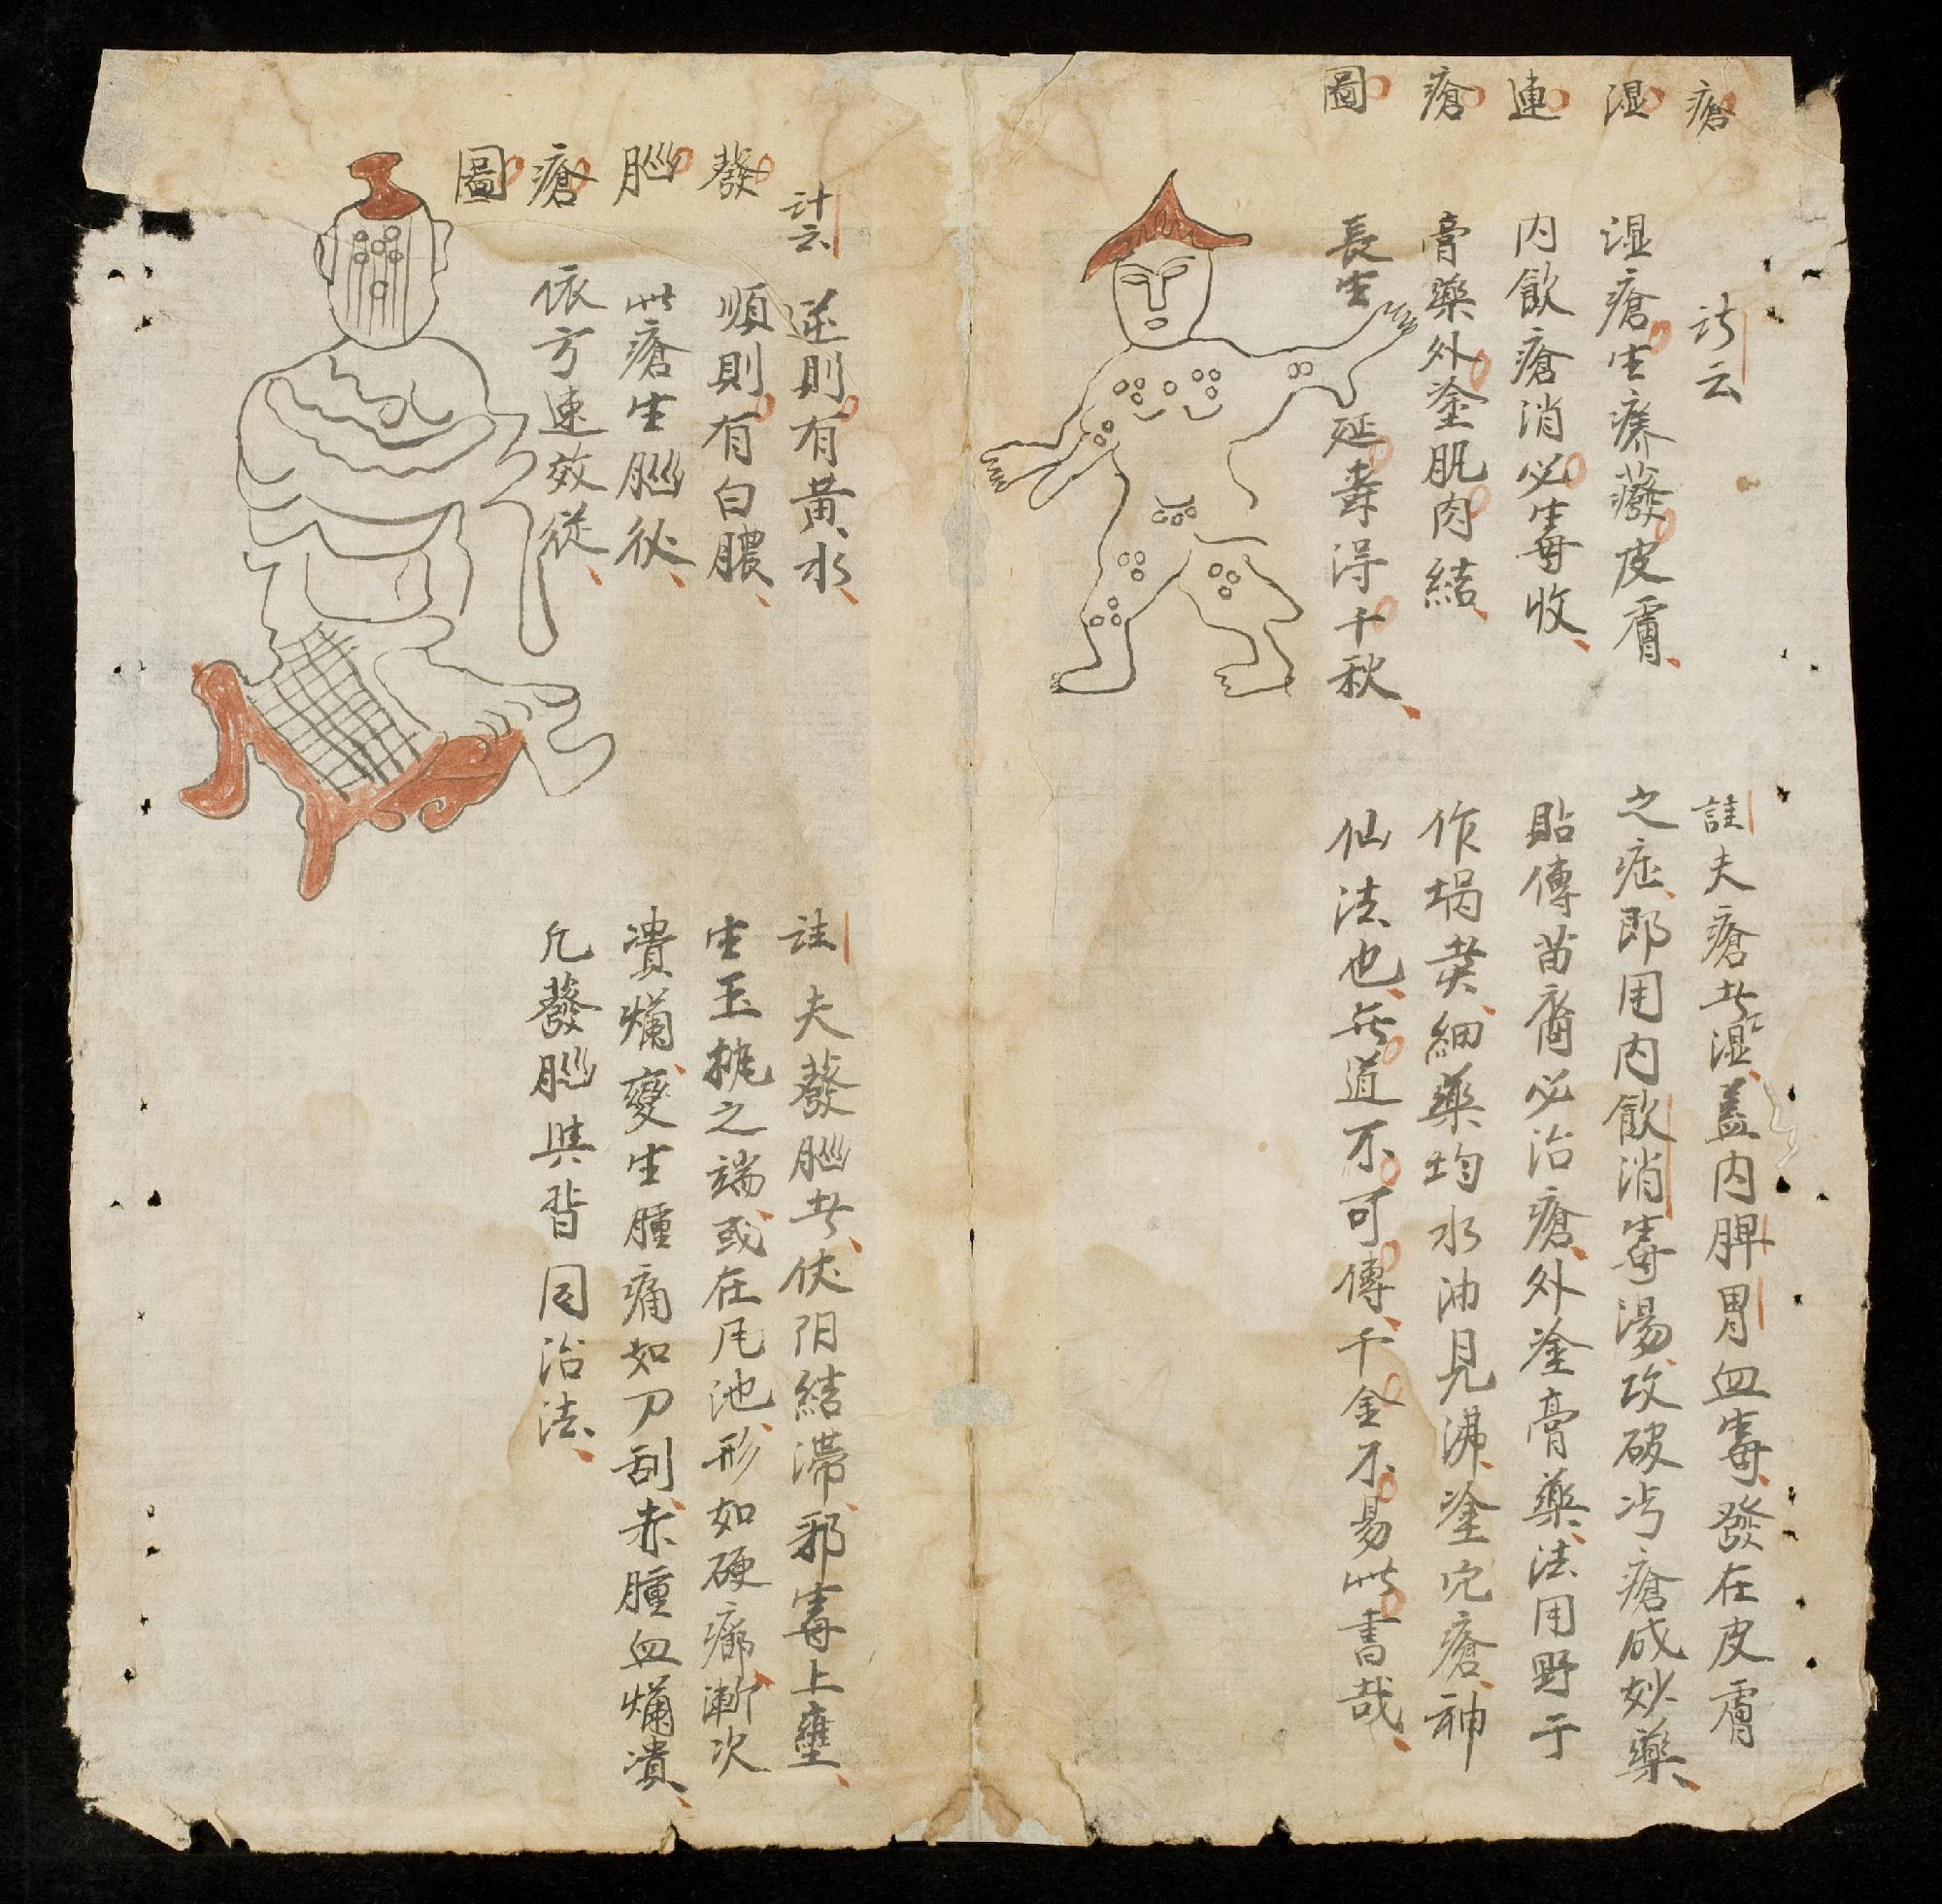 瘡
湿
連
瘡
圖
計云
湿瘡生痳蘞皮膚
内飲瘡消必毒收
膏藥外塗肌肉結
長生延壽得千秋
註夫瘡者湿盖内脾胃血毒發在皮膚
之症即用内飲消毒湯攻破污瘡咸妙藥
貼傅苗裔必治瘡外塗膏藥法用野于
作堝黄細藥均水油見沸塗穴瘡神
仙法也無道不可傳千金不易此書哉
發
腦
瘡
圖
計云
逆則有黄水
順則有白膿
此瘡生腦後
依方速效從
註夫發腦者伏阴結滯邪毒上壅
生玉桃之端或在凡池形如硬瘤漸次
潰爛變生腫痛如刀刮赤腫血爛潰
凡發腦與背同治法